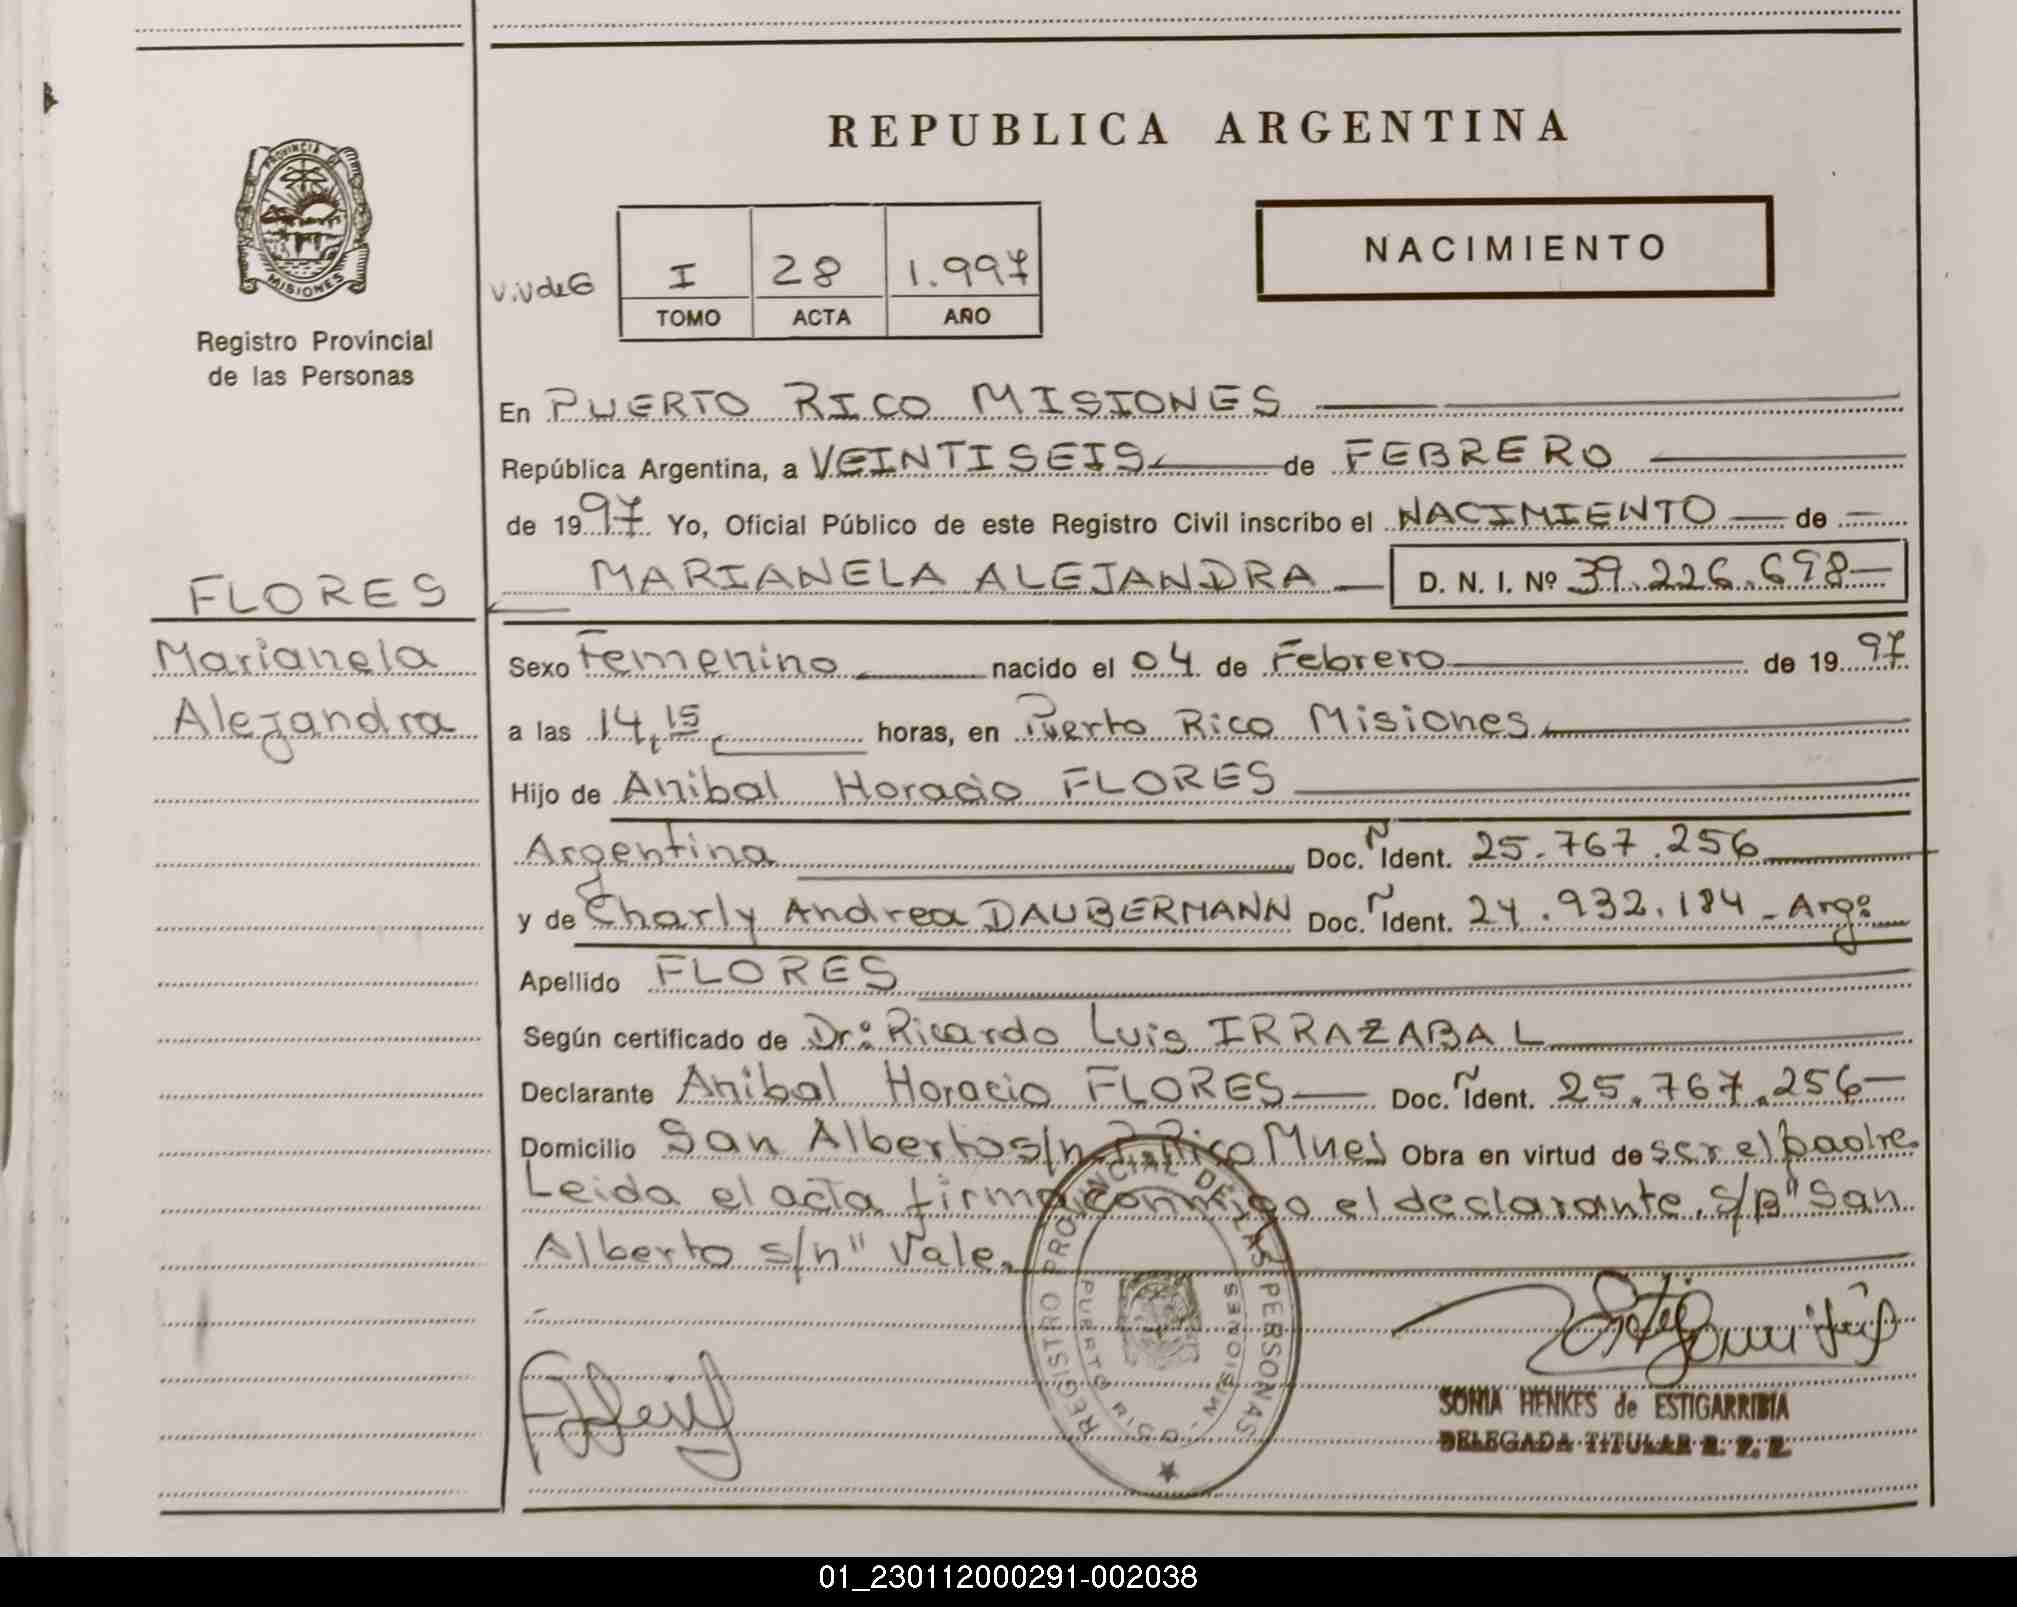 REPUBLICA ARGENTINA
PROVINCIA DE
MISIONES
Registro Provincial
de las Personas
NACIMIENTO
I 28 1.997
TOMO ACTA AÑO
En PUERTO RICO MISIONES
República Argentina, a VEINTISEIS de FEBRERO
de 1997 Yo, Oficial Público de este Registro Civil inscribo el NACIMIENTO de
MARIANELA ALEJANDRA D. N. I. Nº 39.226.698
FLORES
Marianela
Alejandra
Sexo Femenino nacido el 04 de Febrero de 1997
a las 14,15 horas, en Puerto Rico Misiones
Hijo de Anibal Horacio FLORES
Argentina Doc. Ident. 25.767.256
y de Charly Andrea DAUBERMANN Doc. Ident. 24.932.184 - Argº
Apellido FLORES
Según certificado de Dr: Ricardo Luis IRRAZABAL
Declarante Anibal Horacio FLORES Doc. Ident. 25.767.256
Domicilio San Alberto s/n P. Rico Mnes Obra en virtud de ser el padre.
Leida el acta firma conmigo el declarante. s/p "San
Alberto s/n" Vale.
REGISTRO PROVINCIAL DE LAS PERSONAS
PUERTO RICO - MISIONES
SONIA HENKES de ESTIGARRIBIA
DELEGADA TITULAR R. P. P.
01_230112000291-002038